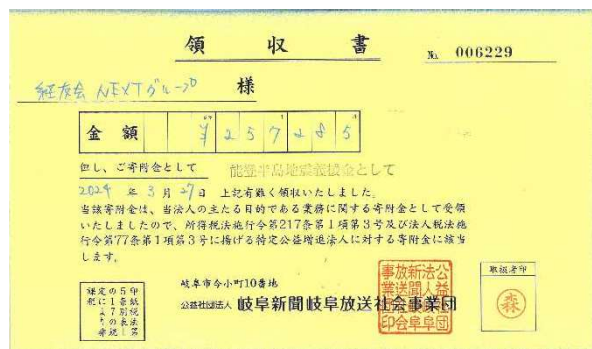 領収書
№ 006229
経友会 NEXTグループ 様
金額 ¥257285
但し、ご寄附金として 能登半島地震義援金として
2024年3月27日 上記有難く領収いたしました。
当該寄附金は、当法人の主たる目的である業務に関する寄附金として受領
いたしましたので、所得税法施行令第217条第1項第3号及び法人税法施
行令第77条第1項第3号に掲げる特定公益増進法人に対する寄附金に該当
します。
岐阜市今小町10番地
公益社団法人 岐阜新聞岐阜放送社会事業団
取扱者印
森